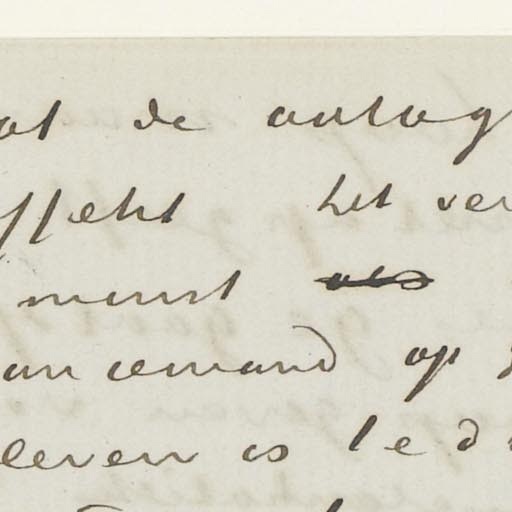 at de aulag
ffekt het ver
munst
an iemand op
leven is te d